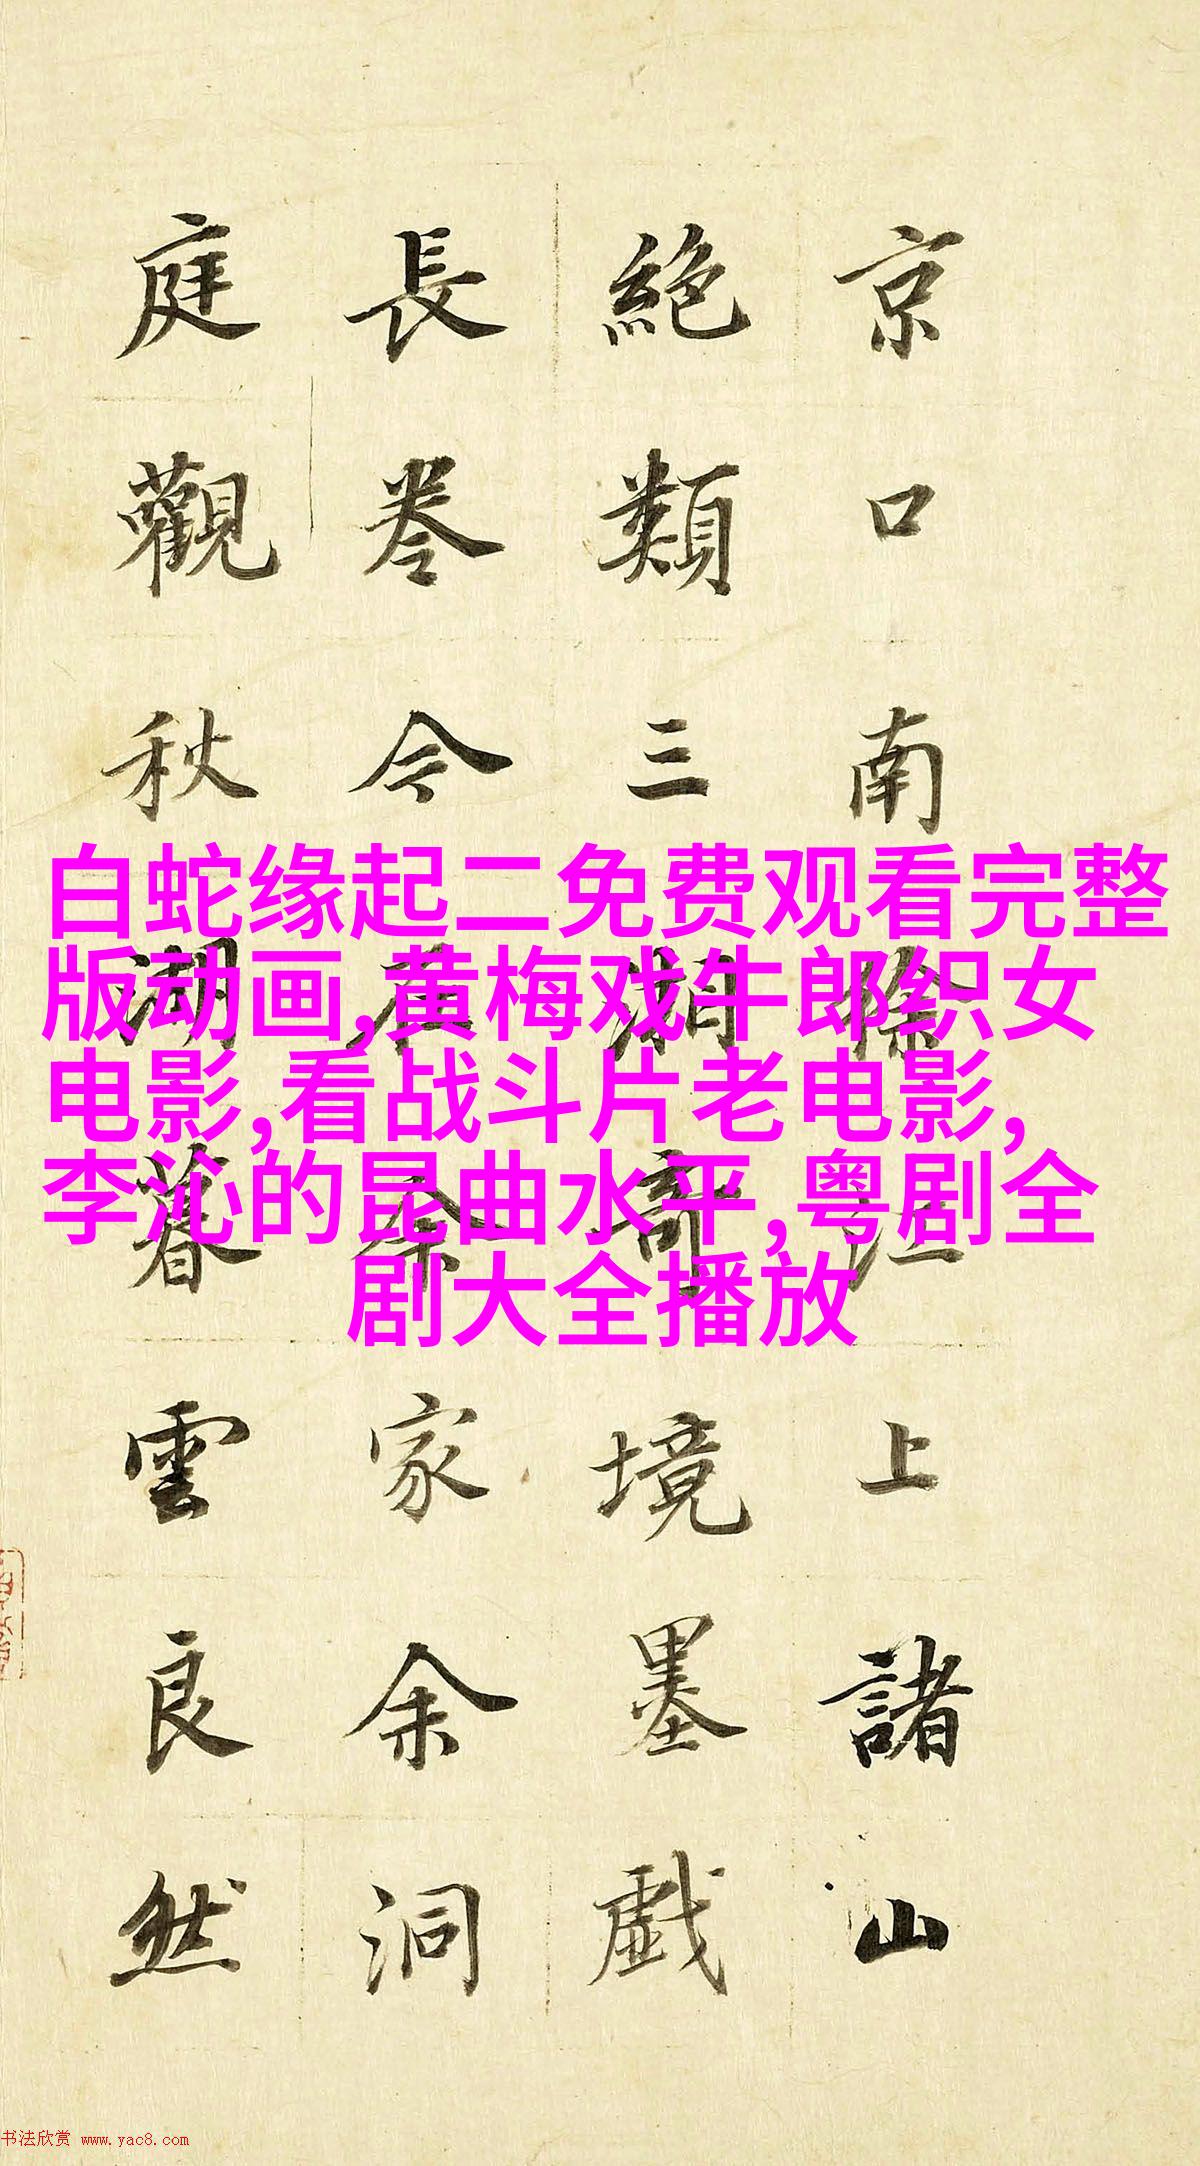 京口南徐江上諸山
絕類三湘奇境墨戲
長卷今在余家余洞
庭觀秋湖暮雲良然
白蛇缘起二免费观看完整
版动画,黄梅戏牛郎织女
电影,看战斗片老电影,
李沁的昆曲水平,粤剧全
剧大全播放
书法欣赏 www.yac8.com